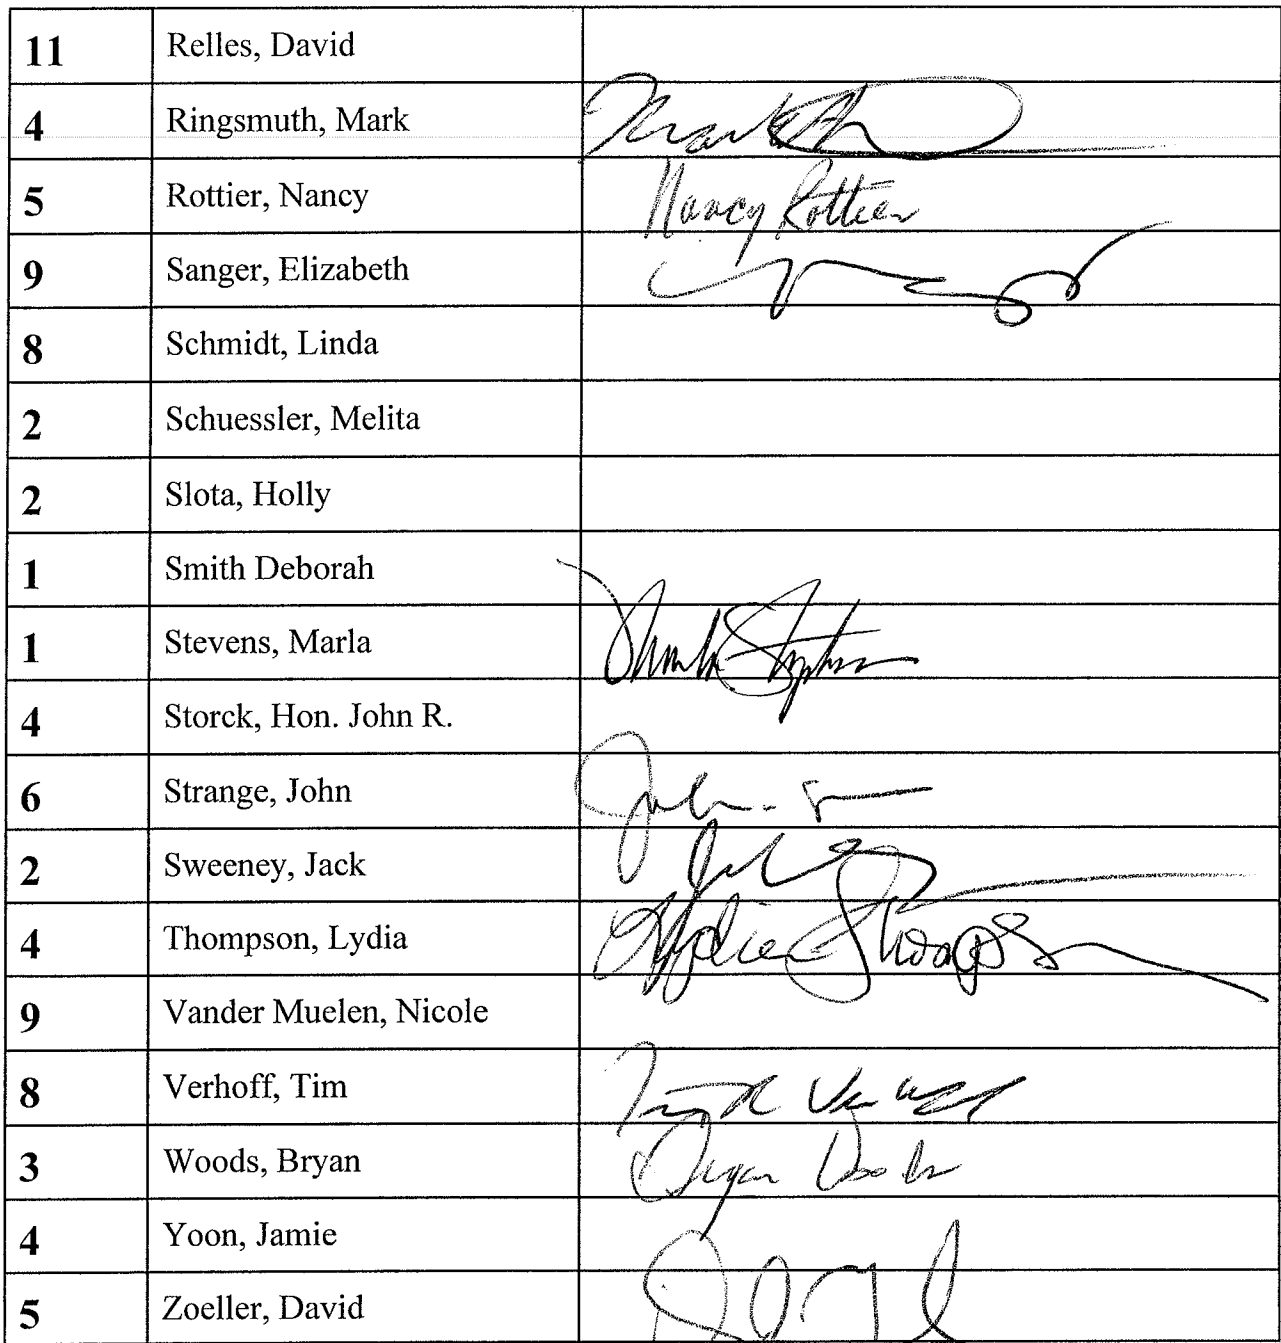 11 Relles, David
4 Ringsmuth, Mark Mark
5 Rottier, Nancy Nancy Rottier
9 Sanger, Elizabeth
8 Schmidt, Linda
2 Schuessler, Melita
2 Slota, Holly
1 Smith Deborah
1 Stevens, Marla
4 Storck, Hon. John R.
6 Strange, John John
2 Sweeney, Jack
4 Thompson, Lydia Lydia Thompson
9 Vander Muelen, Nicole
8 Verhoff, Tim
3 Woods, Bryan Bryan Woods
4 Yoon, Jamie
5 Zoeller, David